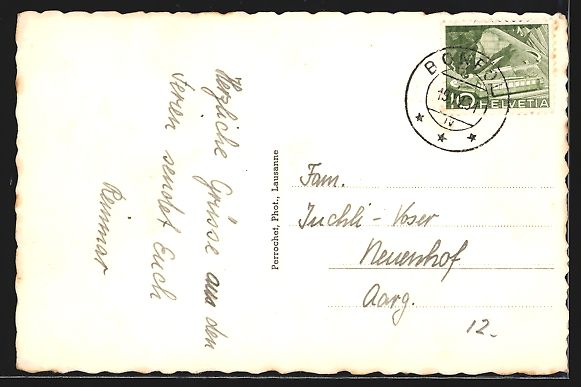 Herzliche Grüsse aus den
Ferien sendet Euch
Reinmar
Perrochet, Phot., Lausanne
BONFOL
10
HELVETIA
Fam.
Tuchli - Voser
Neuenhof
Aarg.
12.-